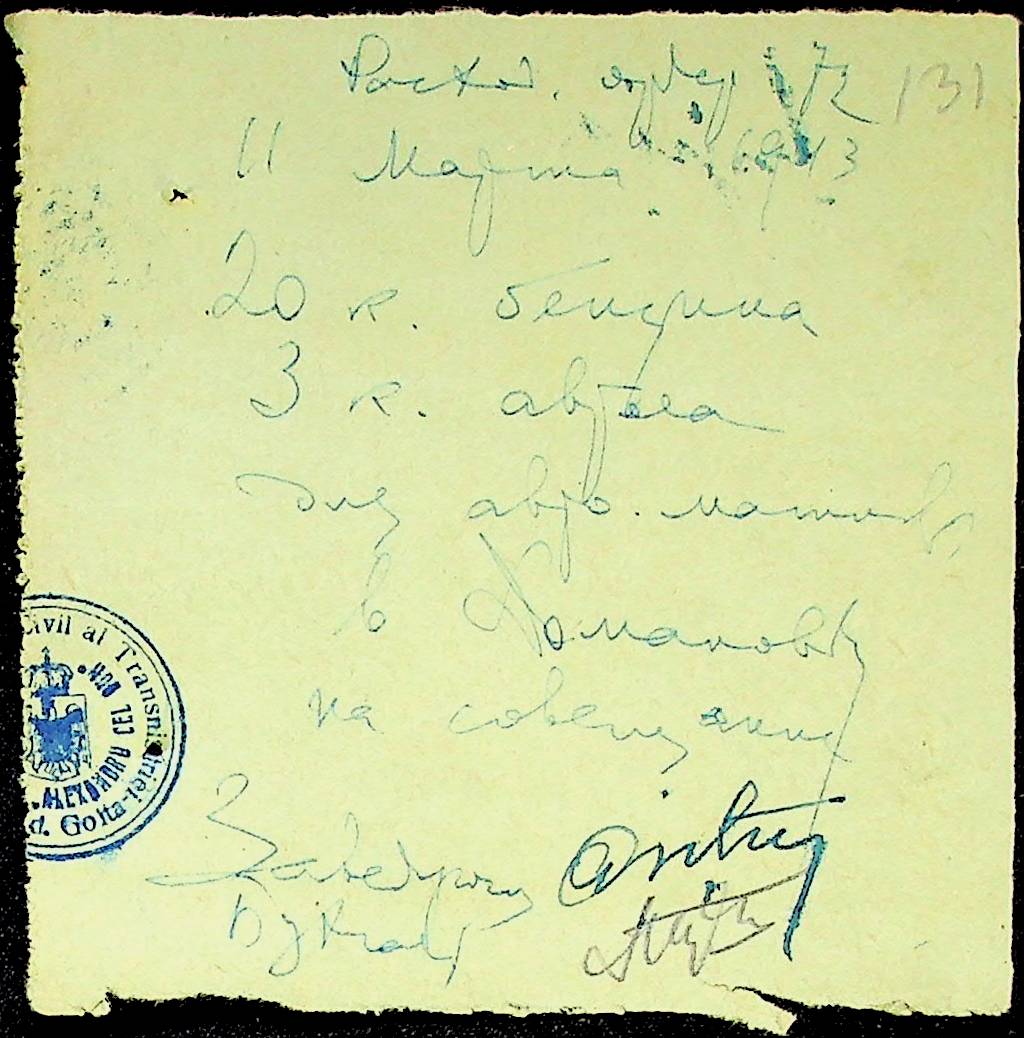 Расход. ордер 72 131
11 Марта 1943
20 к. бензина
3 к. автола
для авто. машины
в Домановку
на совещание
Civil al Transnistriei
ALEXANDRU CEL BUN
d. Golta